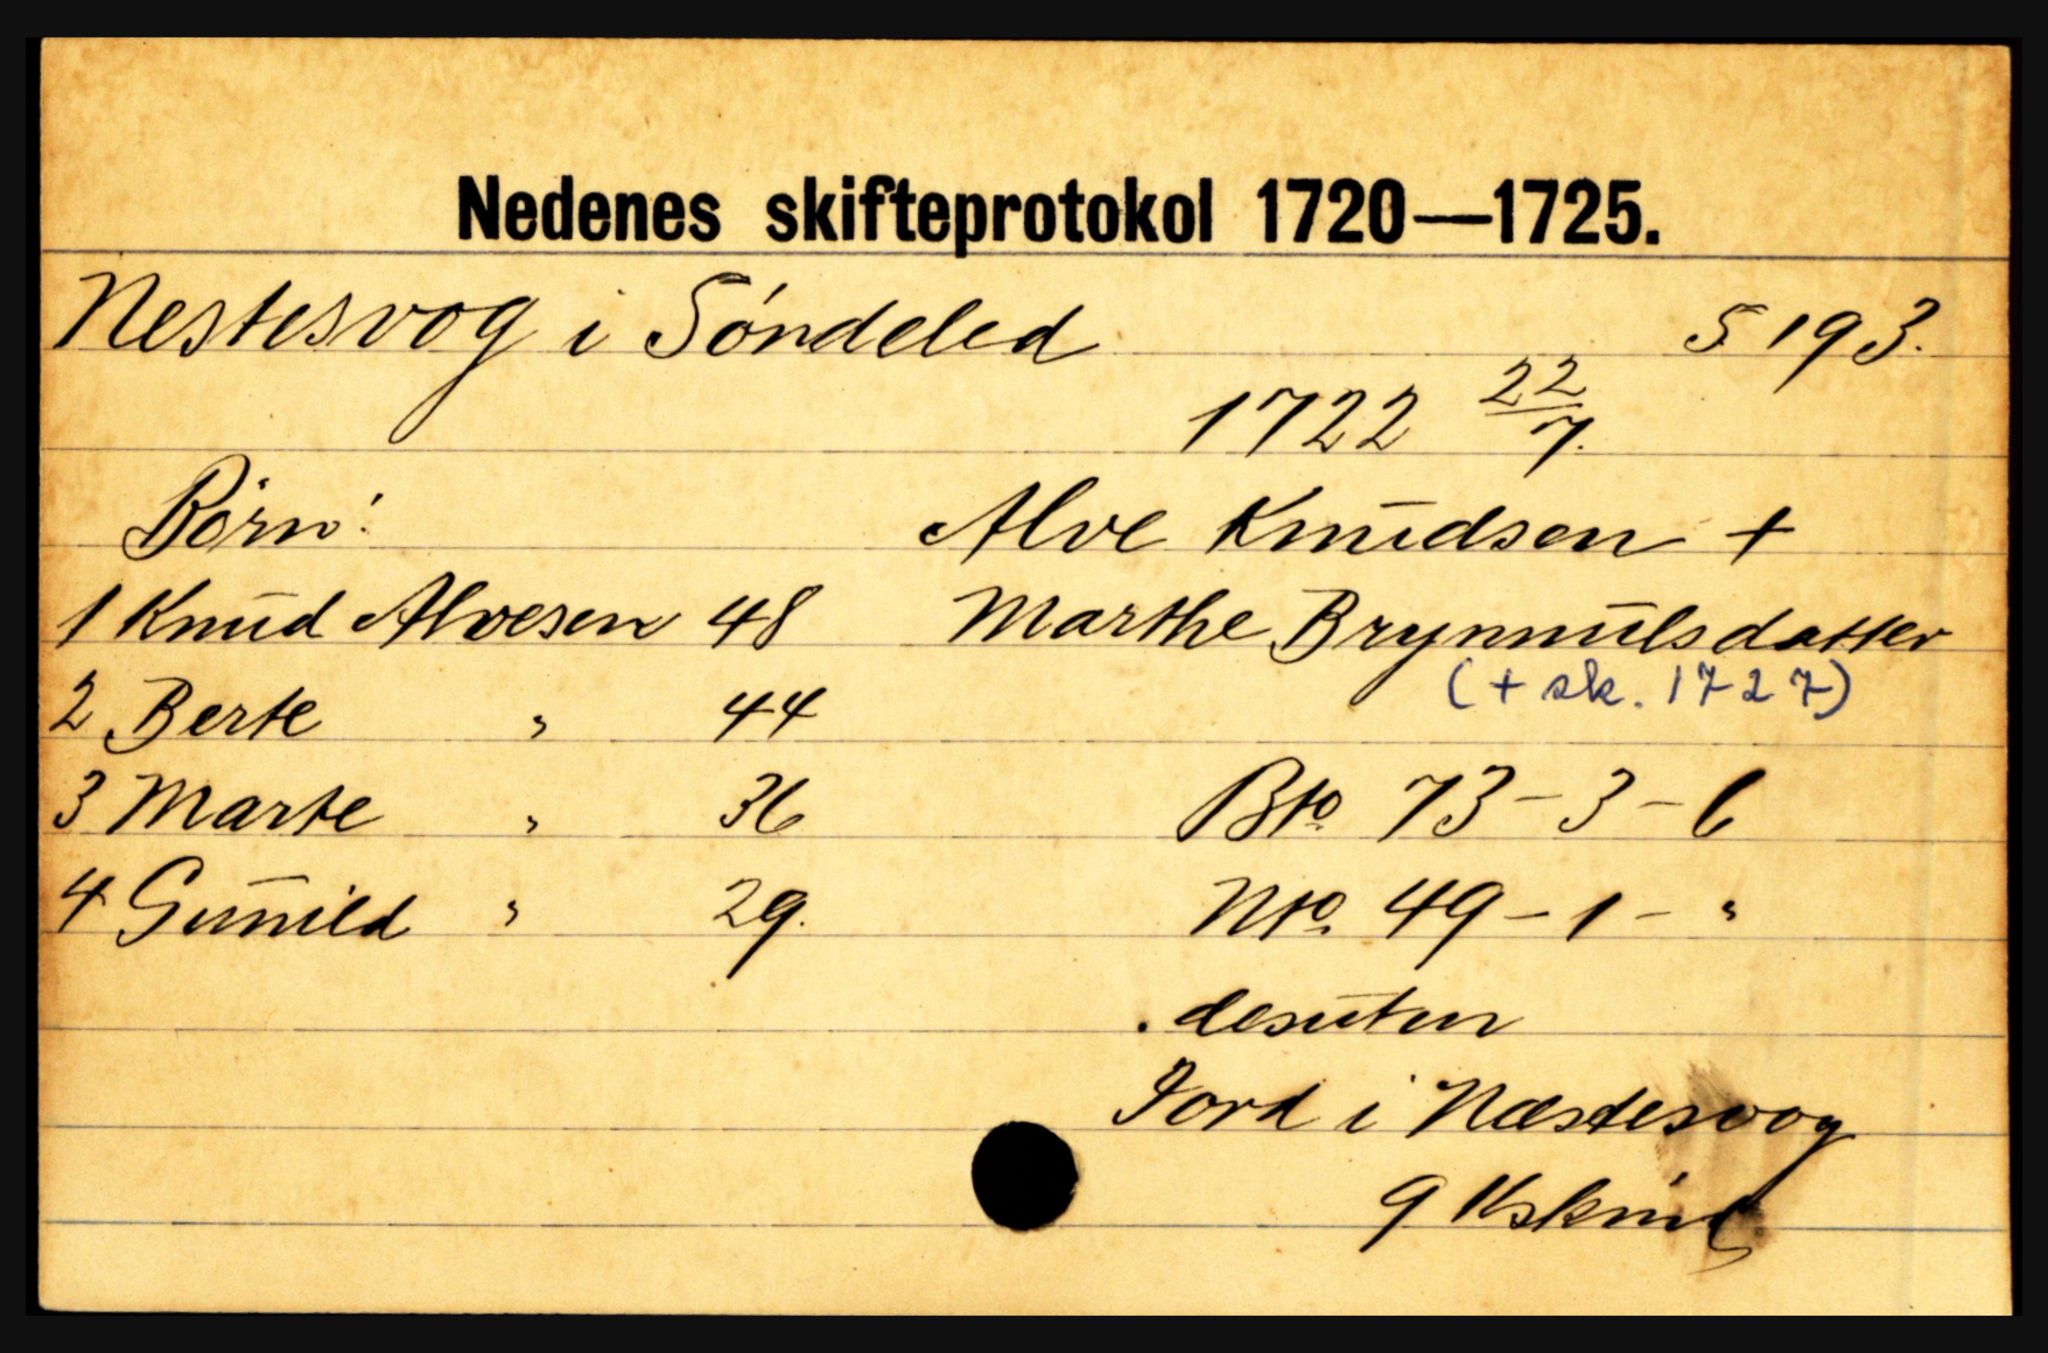 Nedenes skifteprotokol 1720—1725.
Nestesvog i Søndeled S. 193.
1722 22/7.
Børn:
Alve Knudsen +
1 Knud Alvesen 48
Marthe Brynnulsdatter
(+ sk. 1727)
2 Berte " 44
3 Marte " 36
Bto. 73 - 3 - 6
4 Gunild " 29.
Nto. 49 - 1 - "
desuten
Jord i Næstesvog
9 Kskind